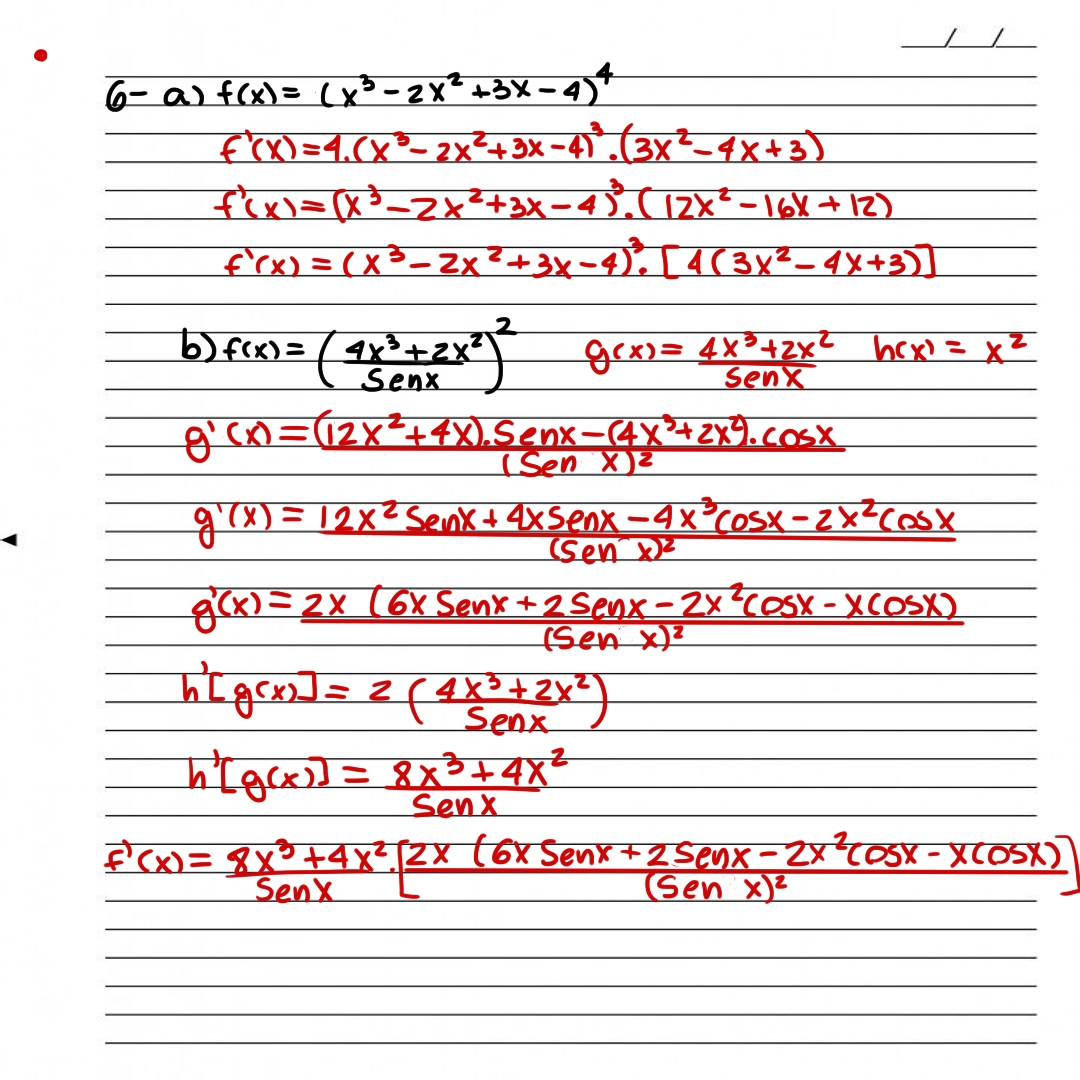 __/__/__
6- a) f(x) = (x³ - 2x² + 3x - 4)⁴
f'(x) = 4.(x³ - 2x² + 3x - 4)³.(3x² - 4x + 3)
f'(x) = (x³ - 2x² + 3x - 4)³.(12x² - 16x + 12)
f'(x) = (x³ - 2x² + 3x - 4)³.[4(3x² - 4x + 3)]
b) f(x) = ((4x³ + 2x²)/Senx)² g(x) = (4x³ + 2x²)/senx h(x) = x²
g'(x) = ((12x² + 4x).Senx - (4x³ + 2x²).cosx)/(Sen x)²
g'(x) = (12x² Senx + 4x Senx - 4x³cosx - 2x²cosx)/(Sen x)²
g'(x) = 2x (6x Senx + 2 Senx - 2x²cosx - xcosx)/(Sen x)²
h'[g(x)] = 2 ((4x³ + 2x²)/Senx)
h'[g(x)] = (8x³ + 4x²)/Senx
f'(x) = (8x³ + 4x²)/Senx . [2x (6x Senx + 2 Senx - 2x²cosx - xcosx)/(Sen x)²]